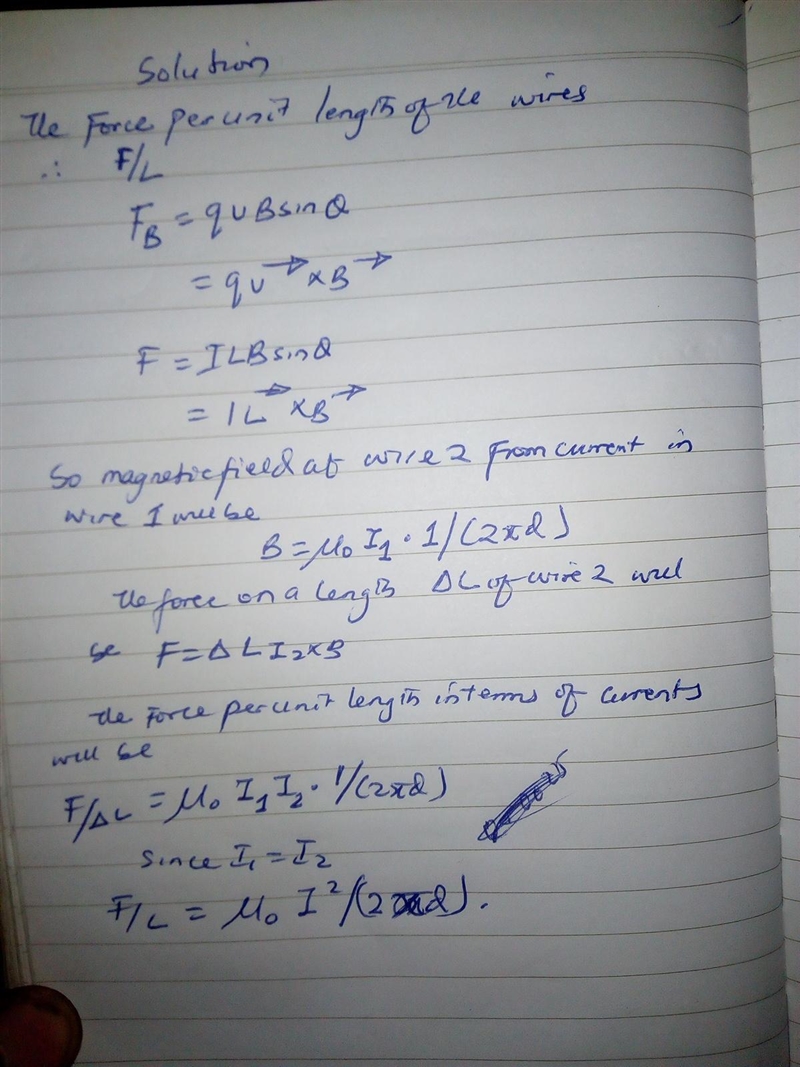 Solution
The Force per unit length of the wires
∴ F/L
F_B = qvBsinθ
= qv→ × B→
F = ILBsinθ
= IL→ × B→
So magnetic field at wire 2 from current in
wire I will be
B = μ₀ I₁ · 1/(2πd)
The force on a length ΔL of wire 2 will
be F = ΔL I₂ × B
The Force per unit length interms of currents
will be
F/ΔL = μ₀ I₁ I₂ · 1/(2πd)
Since I₁ = I₂
F/L = μ₀ I²/(2πd).